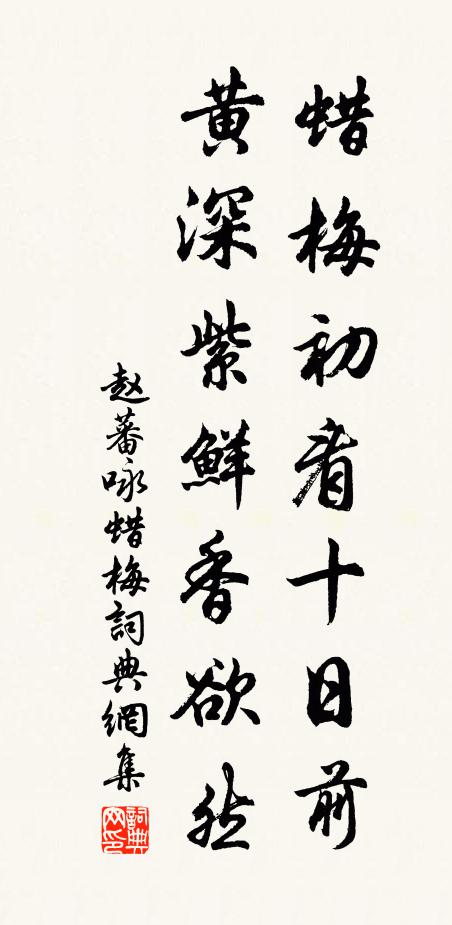 蜡梅初看十日前
黄深紫鮮香欲然
赵蕃咏蜡梅詞典網集
詞典
网印